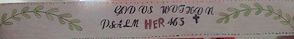 GOD IS WITHIN
PSALM HER 46:5